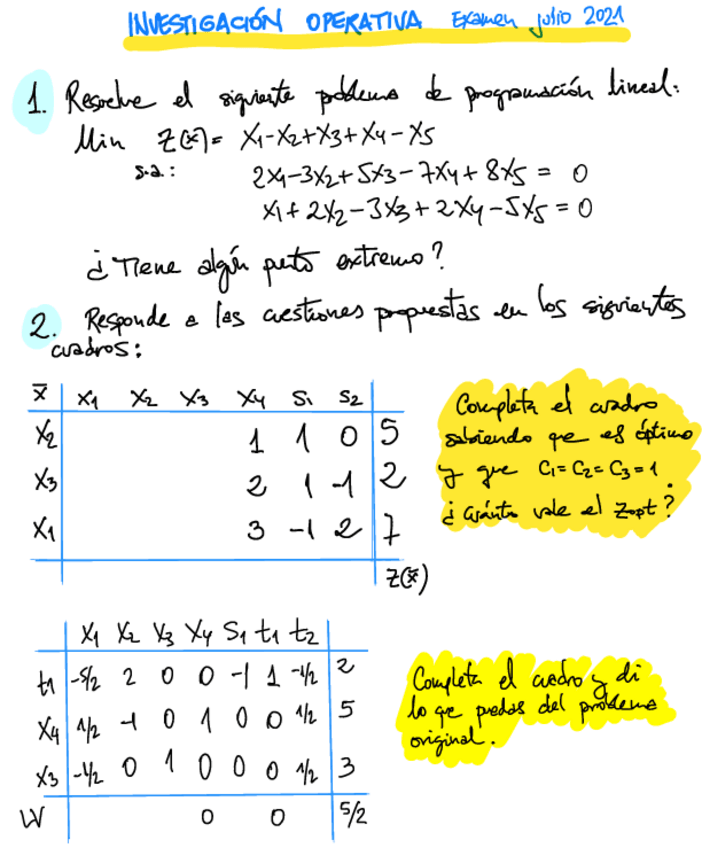 INVESTIGACIÓN OPERATIVA Examen julio 2021
1. Resuelve el siguiente problema de programación lineal:
Min Z(x̄) = X1-X2+X3+X4-X5
s.a.: 2X1-3X2+5X3-7X4+8X5 = 0
X1+2X2-3X3+2X4-5X5=0
¿Tiene algún punto extremo?
2. Responde a las cuestiones propuestas en los siguientes
cuadros:
x̄ X1 X2 X3 X4 S1 S2
X2 1 1 0 5
X3 2 1 -1 2
X1 3 -1 2 7
Z(x̄)
Completa el cuadro
sabiendo que es óptimo
y que C1=C2=C3=1.
¿cuánto vale el Zopt?
X1 X2 X3 X4 S1 t1 t2
t1 -5/2 2 0 0 -1 1 -1/2 2
X4 1/2 -1 0 1 0 0 1/2 5
X3 -1/2 0 1 0 0 0 1/2 3
W 0 0 5/2
Completa el cuadro y di
lo que puedas del problema
original.